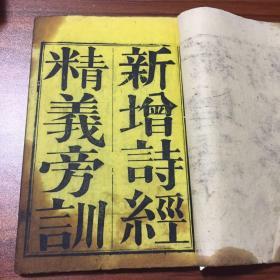 新增詩經
精義旁訓